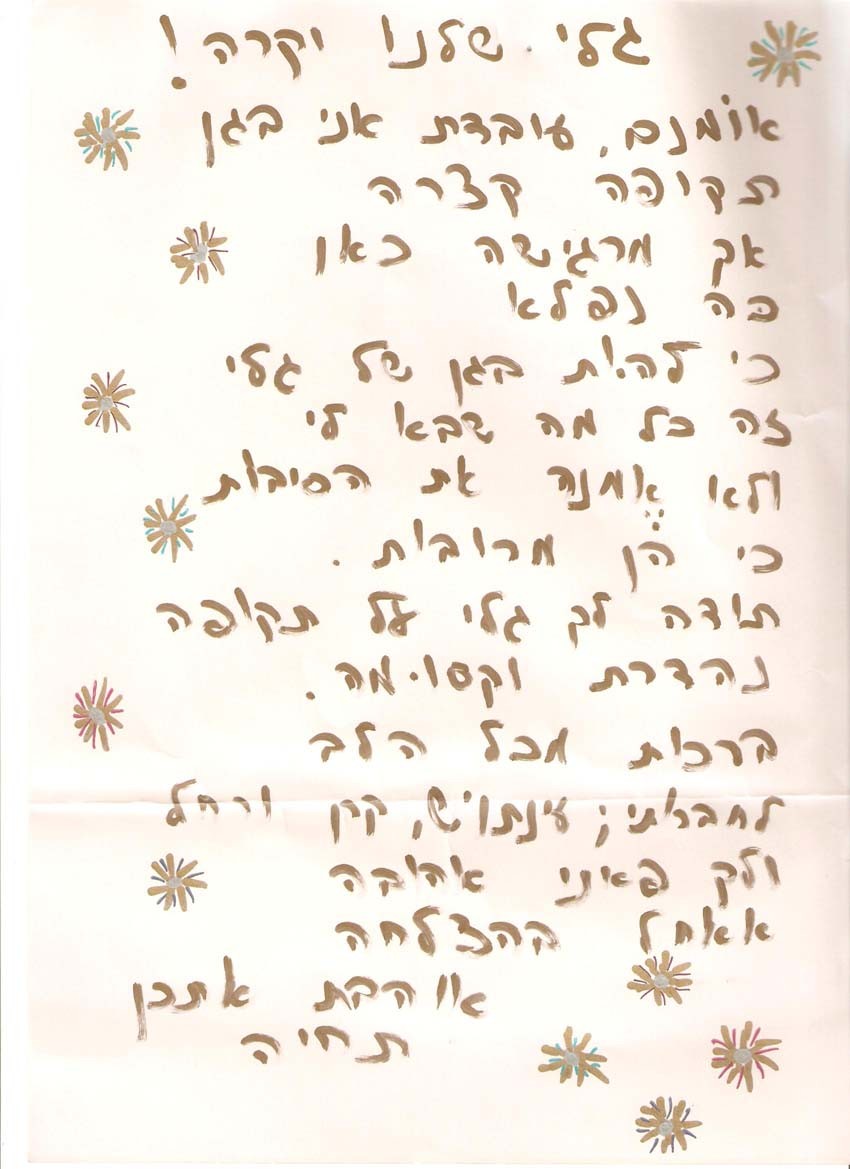 גלי שלנו יקרה!
אוֹמנם, עובדת אני בגן
תקופה קצרה
אך מרגישה כאן
כה נפלא
כי להיות בגן של גלי
זה כל מה שבא לי
ולא אֱמנה את הסיבות
כי הֵן מרובות.
תודה לך גלי על תקופה
נהדרת וקסומה.
ברכות מכל הלב
לחברותי; עינתוש, קרן ורחל
ולך פאיני אהובה
אאחל בהצלחה
אוהבת אתכן
תחיה